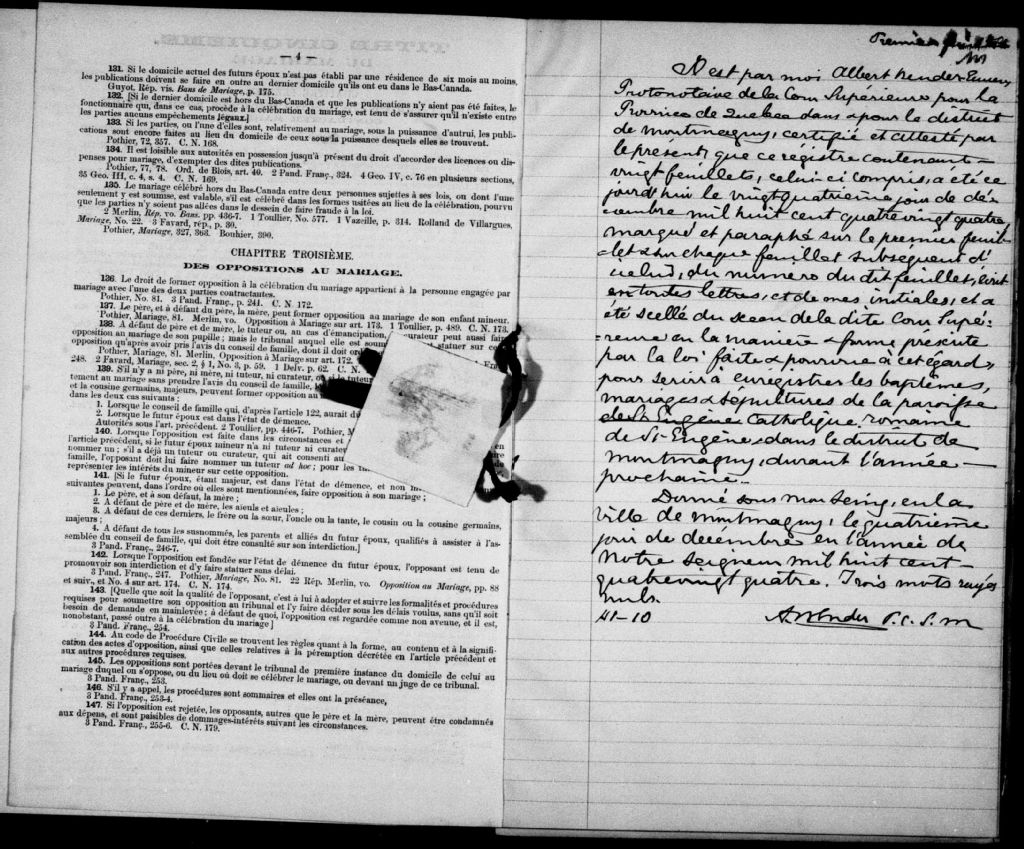 — 4 —
131. Si le domicile actuel des futurs époux n'est pas établi par une résidence de six mois au moins,
les publications doivent se faire en outre au dernier domicile qu'ils ont eu dans le Bas-Canada.
Guyot, Rép. vis. Bans de Mariage, p. 175.
132. [Si le dernier domicile est hors du Bas-Canada et que les publications n'y aient pas été faites, le
fonctionnaire qui, dans ce cas, procède à la célébration du mariage, est tenu de s'assurer qu'il n'existe entre
les parties aucuns empêchements légaux.]
133. Si les parties, ou l'une d'elles sont, relativement au mariage, sous la puissance d'autrui, les publi-
cations sont encore faites au lieu du domicile de ceux sous la puissance desquels elles se trouvent.
Pothier, 72, 357. C. N. 168.
134. Il est loisible aux autorités en possession jusqu'à présent du droit d'accorder des licences ou dis-
penses pour mariage, d'exempter des dites publications.
Pothier, 77, 78. Ord. de Blois, art. 40. 2 Pand. Franç., 324. 4 Geo. IV, c. 76 en plusieurs sections,
35 Geo. III, c. 4, s. 4. C. N. 169.
135. Le mariage célébré hors du Bas-Canada entre deux personnes sujettes à ses lois, ou dont l'une
seulement y est soumise, est valable, s'il est célébré dans les formes usitées au lieu de la célébration, pourvu
que les parties n'y soient pas allées dans le dessein de faire fraude à la loi.
2 Merlin, Rép. vo. Bans. pp. 436-7. 1 Toullier, No. 577. 1 Vazeille, p. 314. Rolland de Villargues,
Mariage, No. 22. 3 Favard, rép., p. 30.
Pothier, Mariage, 327, 363. Bouhier, 390.
CHAPITRE TROISIÈME.
DES OPPOSITIONS AU MARIAGE.
136. Le droit de former opposition à la célébration du mariage appartient à la personne engagée par
mariage avec l'une des deux parties contractantes.
Pothier, No. 81. 3 Pand. Franç., p. 241. C. N. 172.
137. Le père, et à défaut du père, la mère, peut former opposition au mariage de son enfant mineur.
Pothier, Mariage, 81. Merlin, vo. Opposition à Mariage sur art. 173. 1 Toullier, p. 489. C. N. 173.
138. A défaut de père et de mère, le tuteur ou, au cas d'émancipation, curateur peut aussi faire
opposition au mariage de son pupille; mais le tribunal auquel elle est soum statuer sur cet
opposition qu'après avoir pris l'avis du conseil de famille, dont il doit ord
Pothier, Mariage, 81. Merlin, Opposition à Mariage sur art. 172.
248. 2 Favard, Mariage, sec. 2, § 1, No. 3, p. 59. 1 Delv. p. 62. C. N.
139. S'il n'y a ni père, ni mère, ni tuteur, ni curateur, ou si le tuteur
tement au mariage sans prendre l'avis du conseil de famille, le
et la cousine germains, majeurs, peuvent former opposition au
dans les deux cas suivants :
1. Lorsque le conseil de famille qui, d'après l'article 122, aurait dû
2. Lorsque le futur époux est dans l'état de démence.
Autorités sous l'art. précédent. 2 Toullier, pp. 446-7. Pothier, M
140. Lorsque l'opposition est faite dans les circonstances et
l'article précédent, si le futur époux mineur n'a ni tuteur ni curateur
nommer un ; s'il a déjà un tuteur ou curateur, qui ait consenti au
famille, l'opposant doit lui faire nommer un tuteur ad hoc ; pour les
représenter les intérêts du mineur sur cette opposition.
141. [Si le futur époux, étant majeur, est dans l'état de démence, et non
suivantes peuvent, dans l'ordre où elles sont mentionnées, faire opposition à son mariage ;
1. Le père, et à son défaut, la mère ;
2. A défaut de père et de mère, les aïeuls et aïeules ;
3. A défaut de ces derniers, le frère ou la sœur, l'oncle ou la tante, le cousin ou la cousine germains,
majeurs ;
4. A défaut de tous les susnommés, les parents et alliés du futur époux, qualifiés à assister à l'as-
semblée du conseil de famille, qui doit être consulté sur son interdiction.]
3 Pand. Franç., 246-7.
142. Lorsque l'opposition est fondée sur l'état de démence du futur époux, l'opposant est tenu de
promouvoir son interdiction et d'y faire statuer sans délai.
3 Pand. Franç., 247. Pothier, Mariage, No. 81. 22 Rép. Merlin, vo. Opposition au Mariage, pp. 88
et suiv., et No. 4 sur art. 174. C. N. 174.
143. [Quelle que soit la qualité de l'opposant, c'est à lui à adopter et suivre les formalités et procédures
requises pour soumettre son opposition au tribunal et l'y faire décider sous les délais voulus, sans qu'il soit
besoin de demande en mainlevée ; à défaut de quoi, l'opposition est regardée comme non avenue, et il est,
nonobstant, passé outre à la célébration du mariage]
3 Pand. Franç., 254.
144. Au code de Procédure Civile se trouvent les règles quant à la forme, au contenu et à la signifi-
cation des actes d'opposition, ainsi que celles relatives à la péremption décrétée en l'article précédent et
aux autres procédures requises.
145. Les oppositions sont portées devant le tribunal de première instance du domicile de celui au
mariage duquel on s'oppose, ou du lieu où doit se célébrer le mariage, ou devant un juge de ce tribunal.
3 Pand. Franç., 253.
146. S'il y a appel, les procédures sont sommaires et elles ont la préséance,
3 Pand. Franç., 253-4.
147. Si l'opposition est rejetée, les opposants, autres que le père et la mère, peuvent être condamnés
aux dépens, et sont paisibles de dommages-intérêts suivant les circonstances.
3 Pand. Franç., 255-6. C. N. 179.
Premier
Il est par moi Albert Bender Ecuier,
Protonotaire de la Cour Supérieure pour la
Province de Québec dans & pour le district
de Montmagny, certifié et attesté par
le present, que ce régistre contenant —
vingt feuillets, celui ci compris, a été ce
jourd'hui le vingt quatrième jour de dé-
cembre mil huit cent quatre vingt quatre
marqué et paraphé sur le premier feuil-
let & sur chaque feuillet subséquent d'
icelui, du numero du dit feuillet, écrit
en toutes lettres, et de mes initiales, et a
été scellé du sceau de la dite Cour Supé-
rieure en la manière & forme prescrite
par la loi faite & pourvue à cet égard,
pour servir à enregistrer les baptêmes,
mariages & sepultures de la paroisse
de St Eugène Catholique romaine
de St-Eugène, dans le district de
Montmagny, durant l'année —
prochaine.
Donné sous mon Seing, en la
ville de Montmagny, le quatrième
jour de decémbre en l'année de
Notre Seigneur mil huit cent —
quatrevingt quatre. Trois mots rayés
nuls.
41-10 A Bender P. C. S. M